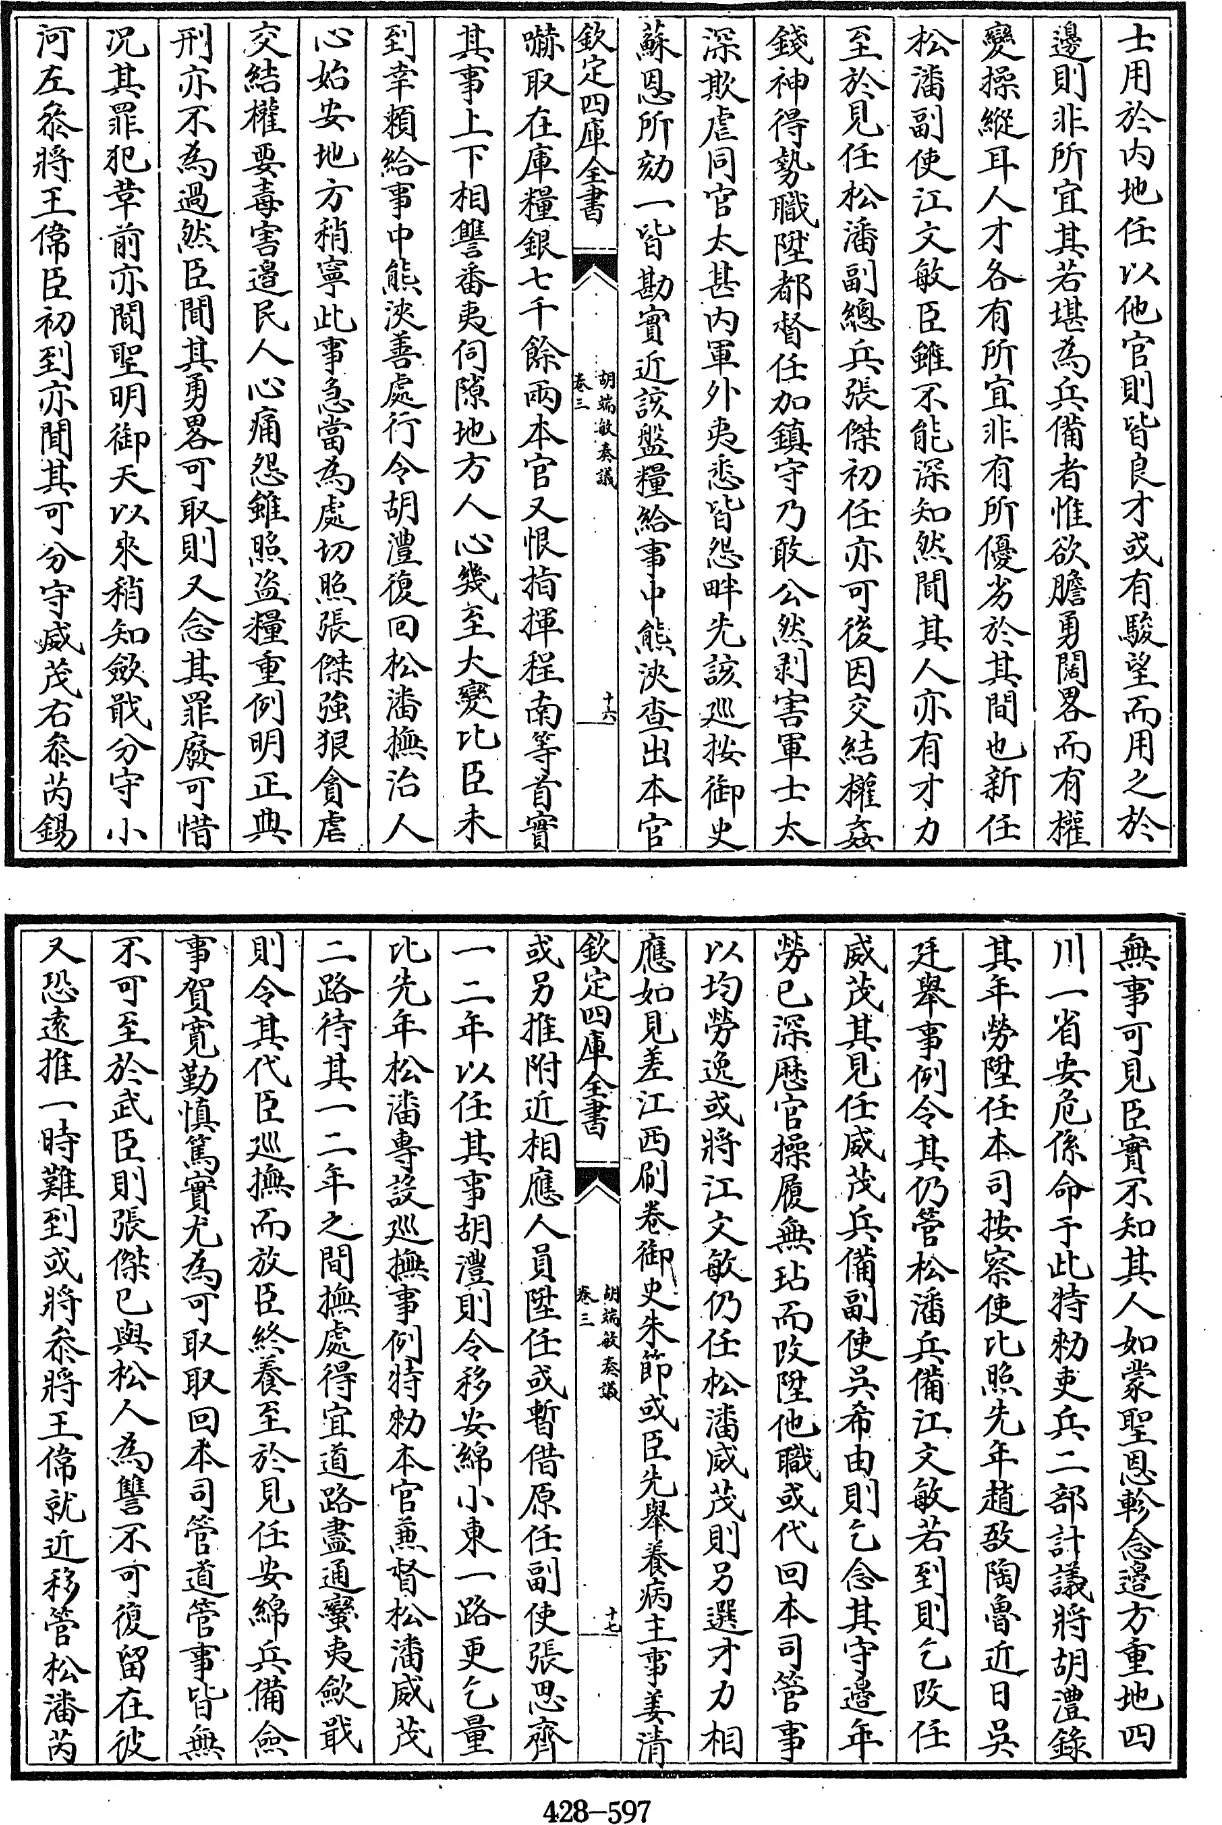 士用於内地任以他官則皆良才或有駿望而用之於
邊則非所宜其若堪為兵備者惟欲膽勇闊畧而有權
變操縱耳人才各有所宜非有所優劣於其間也新任
松潘副使江文敏臣雖不能深知然聞其人亦有才力
至於見任松潘副總兵張傑初任亦可後因交結權姦
錢神得勢職陞都督任加鎮守乃敢公然剥害軍士太
深欺虐同官太甚内軍外夷悉皆怨畔先該巡按御史
蘇恩所劾一皆勘實近該盤糧給事中熊浹查出本官
欽定四庫全書
胡端敏奏議
卷三
十六
嚇取在庫糧銀七千餘兩本官又恨指揮程南等首實
其事上下相讐番夷伺隙地方人心幾至大變比臣未
到幸賴給事中熊浹善處行令胡澧復回松潘撫治人
心始安地方稍寧此事急當為處切照張傑強狠貪虐
交結權要毒害邊民人心痛怨雖照盗糧重例明正典
刑亦不為過然臣聞其勇畧可取則又念其罪廢可惜
况其罪犯革前亦聞聖明御天以來稍知斂戢分守小
河左叅將王偉臣初到亦聞其可分守威茂右叅芮錫
無事可見臣實不知其人如蒙聖恩軫念邊方重地四
川一省安危係命于此特勅吏兵二部計議將胡澧錄
其年勞陞任本司按察使比照先年趙敔陶魯近日吳
廷舉事例令其仍管松潘兵備江文敏若到則乞改任
威茂其見任威茂兵備副使吳希由則乞念其守邊年
勞已深歷官操履無玷而改陞他職或代回本司管事
以均勞逸或將江文敏仍任松潘威茂則另選才力相
應如見差江西刷卷御史朱節或臣先舉養病主事姜清
欽定四庫全書
胡端敏奏議
卷三
十七
或另推附近相應人員陞任或暫借原任副使張思齊
一二年以任其事胡澧則令移安綿小東一路更乞量
比先年松潘專設巡撫事例特勅本官兼督松潘威茂
二路待其一二年之間撫處得宜道路盡通蠻夷斂戢
則令其代臣巡撫而放臣終養至於見任安綿兵備僉
事賀寛勤慎篤實尤為可取取回本司管道管事皆無
不可至於武臣則張傑已與松人為讐不可復留在彼
又恐遠推一時難到或將叅將王偉就近移管松潘芮
428-597